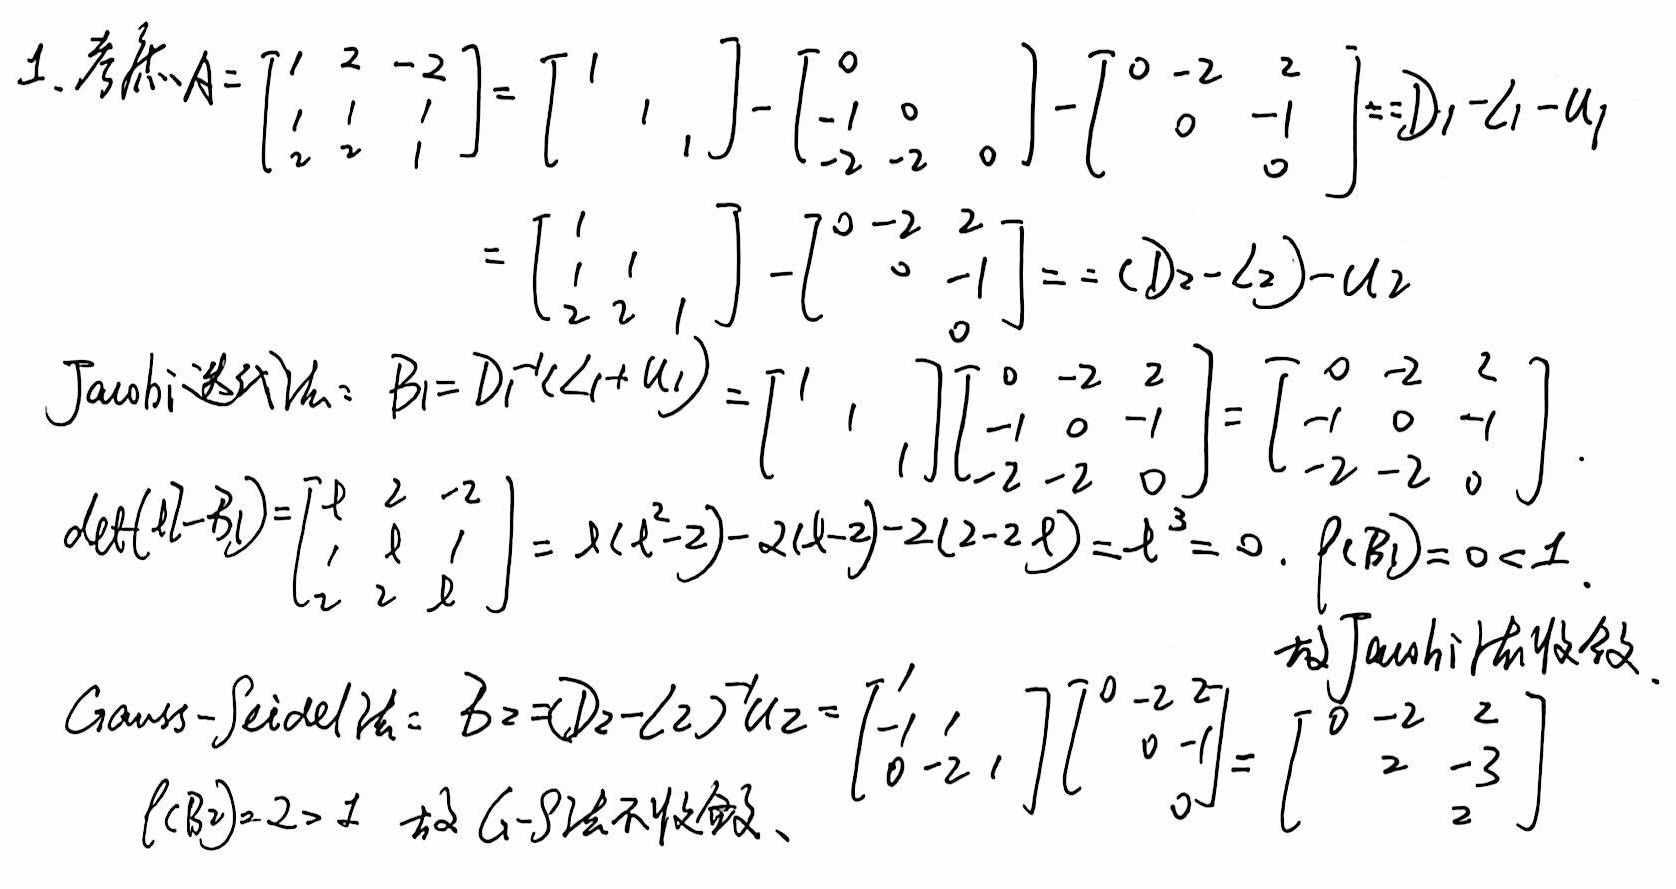 1. 考虑 A = [1 2 -2; 1 1 1; 2 2 1] = [1; 1; 1] - [0; -1 0; -2 -2 0] - [0 -2 2; 0 -1; 0] == D₁ - L₁ - U₁
= [1; 1 1; 2 2 1] - [0 -2 2; 0 -1; 0] == (D₂ - L₂) - U₂
Jacobi迭代法: B₁ = D₁⁻¹(L₁ + U₁) = [1; 1; 1][0 -2 2; -1 0 -1; -2 -2 0] = [0 -2 2; -1 0 -1; -2 -2 0].
det(lI - B₁) = [l 2 -2; 1 l 1; 2 2 l] = l(l² - 2) - 2(l - 2) - 2(2 - 2l) = l³ = 0. ρ(B₁) = 0 < 1.
故Jacobi法收敛.
Gauss-Seidel法: B₂ = (D₂ - L₂)⁻¹U₂ = [1; -1 1; 0 -2 1][0 -2 2; 0 -1; 0] = [0 -2 2; 2 -3; 2]
ρ(B₂) = 2 > 1 故G-S法不收敛、